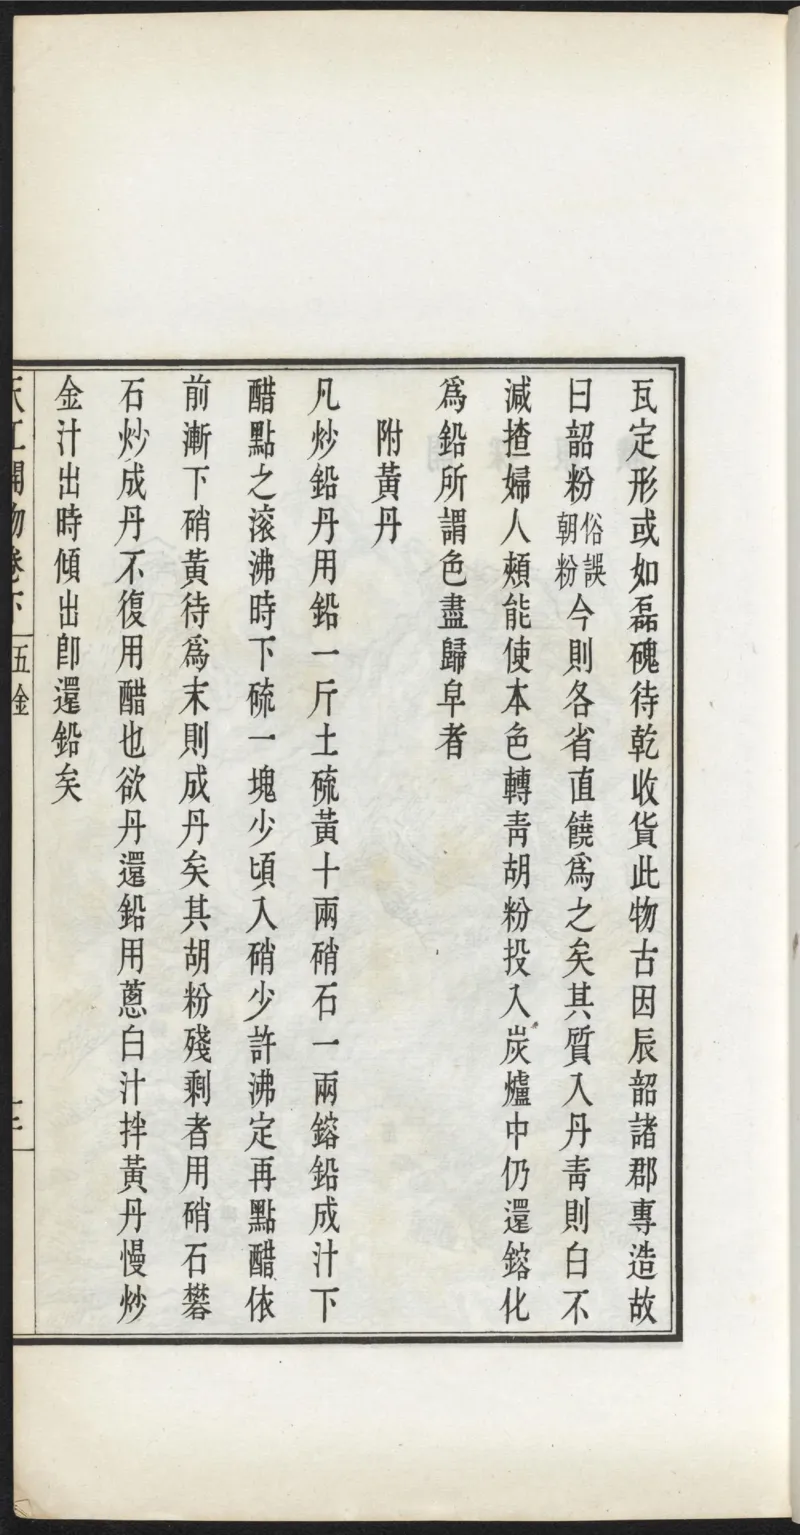 瓦定形或如磊磈待乾收貨此物古因辰韶諸郡專造故
曰韶粉俗誤朝粉今則各省直饒爲之矣其質入丹靑則白不
減揸婦人頰能使本色轉靑胡粉投入炭爐中仍還鎔化
爲鉛所謂色盡歸皁者
附黃丹
凡炒鉛丹用鉛一斤土硫黃十兩硝石一兩鎔鉛成汁下
醋點之滚沸時下硫一塊少頃入硝少許沸定再點醋依
前漸下硝黃待爲末則成丹矣其胡粉殘剩者用硝石礬
石炒成丹不復用醋也欲丹還鉛用蔥白汁拌黃丹慢炒
金汁出時傾出卽還鉛矣
天工開物卷下 五金